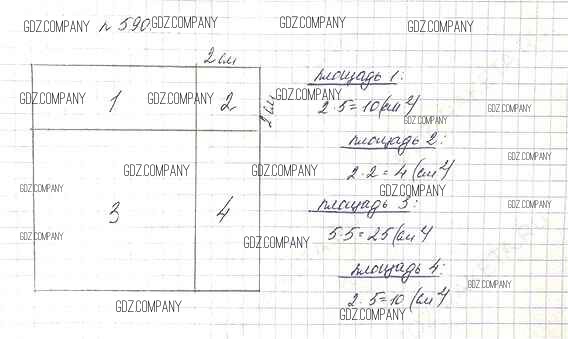 GDZ.COMPANY № 590. GDZ.COMPANY GDZ.COMPANY GDZ.COMPANY
2 см
площадь 1:
GDZ.COMPANY 1 GDZ.COMPANY 2 2 см GDZ.COMPANY
2·5=10(см²) GDZ.COMPANY
GDZ.COMPANY
площадь 2:
GDZ.COMPANY
GDZ.COMPANY GDZ.COMPANY 2·2=4(см²)
GDZ.COMPANY GDZ.COMPANY
3 4 площадь 3: GDZ.COMPANY
GDZ.COMPANY GDZ.COMPANY 5·5=25(см²)
площадь 4:
GDZ.COMPANY
GDZ.COMPANY 2·5=10(см²)
GDZ.COMPANY